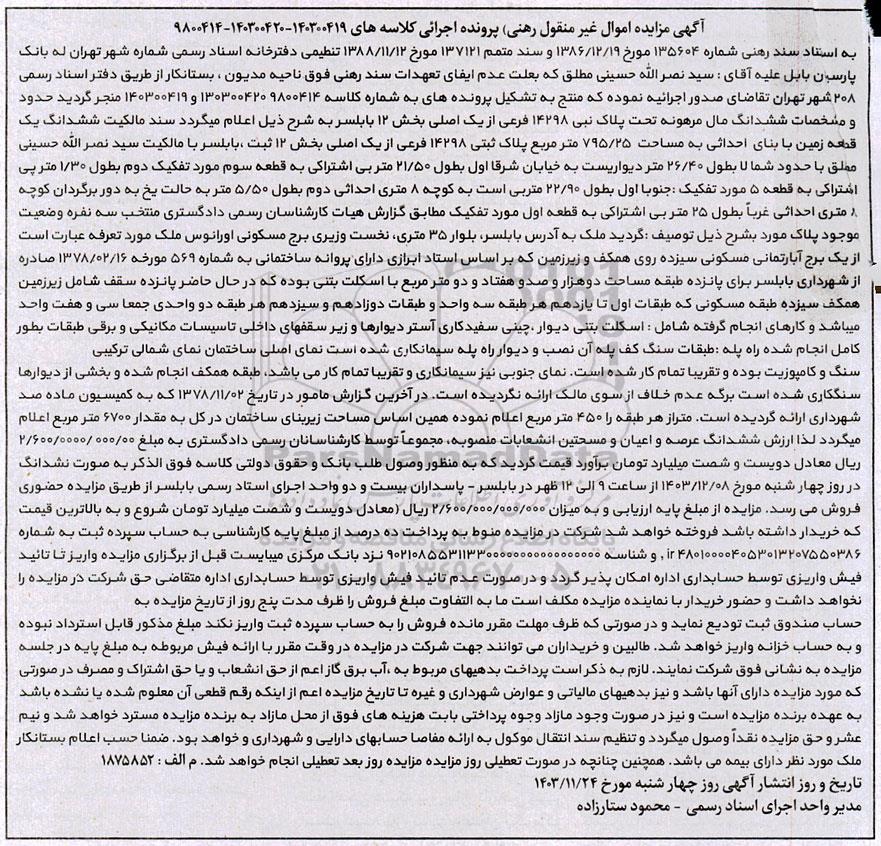 آگهی مزایده اموال غیر منقول رهنی) پرونده اجرائی کلاسه های ۱۴۰۳۰۰۴۱۹-۱۴۰۳۰۰۴۲۰-۹۸۰۰۴۱۴
به استناد سند رهنی شماره ۱۳۵۶۰۴ مورخ ۱۳۸۶/۱۲/۱۹ و سند متمم ۱۳۷۱۲۱ مورخ ۱۳۸۸/۱۱/۱۲ تنظیمی دفترخانه اسناد رسمی شماره شهر تهران له بانک
پارسیان بابل علیه آقای : سید نصر الله حسینی مطلق که بعلت عدم ایفای تعهدات سند رهنی فوق ناحیه مدیون ، بستانکار از طریق دفتر اسناد رسمی
۲۰۸ شهر تهران تقاضای صدور اجرائیه نموده که منتج به تشکیل پرونده های به شماره کلاسه ۹۸۰۰۴۱۴ ۱۳۰۳۰۰۴۲۰ و ۱۴۰۳۰۰۴۱۹ منجر گردید حدود
و مشخصات ششدانگ مال مرهونه تحت پلاک نبی ۱۴۲۹۸ فرعی از یک اصلی بخش ۱۲ بابلسر به شرح ذیل اعلام میگردد سند مالکیت ششدانگ یک
قطعه زمین با بنای احداثی به مساحت ۷۹۵/۲۵ متر مربع پلاک ثبتی ۱۴۲۹۸ فرعی از یک اصلی بخش ۱۲ ثبت ،بابلسر با مالکیت سید نصر الله حسینی
مطلق با حدود شما لا بطول ۲۶/۴۰ متر دیواریست به خیابان شرقا اول بطول ۲۱/۵۰ متر بی اشتراکی به قطعه سوم مورد تفکیک دوم بطول ۱/۳۰ متر پی
اشتراکی به قطعه ۵ مورد تفکیک :جنوبا اول بطول ۲۲/۹۰ متربی است به کوچه ۸ متری احداثی دوم بطول ۵/۵۰ متر به حالت یخ به دور برگردان کوچه
۸ متری احداثی غرباً بطول ۲۵ متر بی اشتراکی به قطعه اول مورد تفکیک مطابق گزارش هیات کارشناسان رسمی دادگستری منتخب سه نفره وضعیت
موجود پلاک مورد بشرح ذیل توصیف :گردید ملک به آدرس بابلسر، بلوار ۳۵ متری، نخست وزیری برج مسکونی اورانوس ملک مورد تعرفه عبارت است
از یک برج آپارتمانی مسکونی سیزده روی همکف و زیرزمین که بر اساس استاد ابرازی دارای پروانه ساختمانی به شماره ۵۶۹ مورخه ۱۳۷۸/۰۲/۱۶ صادره
از شهرداری بابلسر برای پانزده طبقه مساحت دوهزار و صدو هفتاد و دو متر مربع با اسکلت بتنی بوده که در حال حاضر پانزده سقف شامل زیرزمین
همکف سیزده طبقه مسکونی که طبقات اول تا یازدهم هر طبقه سه واحد و طبقات دوازدهم و سیزدهم هر طبقه دو واحدی جمعا سی و هفت واحد
میباشد و کارهای انجام گرفته شامل : اسکلت بتنی دیوار ،چینی سفیدکاری آستر دیوارها و زیر سقفهای داخلی تاسیسات مکانیکی و برقی طبقات بطور
کامل انجام شده راه پله :طبقات سنگ کف پله آن نصب و دیوار راه پله سیمانکاری شده است نمای اصلی ساختمان نمای شمالی ترکیبی
سنگ و کامپوزیت بوده و تقریبا تمام کار شده است. نمای جنوبی نیز سیمانکاری و تقریبا تمام کار می باشد، طبقه همکف انجام شده و بخشی از دیوارها
سنگکاری شده است برگه عدم خلاف از سوی مالک ارائه نگردیده است. در آخرین گزارش مامور در تاریخ ۱۳۷۸/۱۱/۰۲ که به کمیسیون ماده صد
شهرداری ارائه گردیده است. متراژ هر طبقه را ۴۵۰ متر مربع اعلام نموده همین اساس مساحت زیربنای ساختمان در کل به مقدار ۶۷۰۰ متر مربع اعلام
میگردد لذا ارزش ششدانگ عرصه و اعیان و مسحتین انشعابات منصوبه، مجموعاً توسط کارشناسانان رسمی دادگستری به مبلغ ۰۰۰/۰۰ /۲/۶۰۰/۰۰۰۰
ریال معادل دویست و شصت میلیارد تومان برآورد قیمت گردید که به منظور وصول طلب بانک و حقوق دولتی کلاسه فوق الذکر به صورت نشدانگ
در روز چهار شنبه مورخ ۱۴۰۳/۱۲/۰۸ از ساعت ۹ الی ۱۲ ظهر در بابلسر - پاسداران بیست و دو واحد اجرای استاد رسمی بابلسر از طریق مزایده حضوری
فروش می رسد. مزایده از مبلغ پایه ارزیابی و به میزان ۲/۶۰۰/۰۰۰/۰۰۰/۰۰۰ ریال (معادل دویست و شصت میلیارد تومان شروع و به بالاترین قیمت
که خریدار داشته باشد فروخته خواهد شد شرکت در مزایده منوط به پرداخت ده درصد از مبلغ پایه کارشناسی به حساب سپرده ثبت به شماره
ir ۴۸۰۱۰۰۰۰۴۰۵۳۰۱۳۲۰۷۵۵۰۳۸۶, و شناسه نزد بانک مرکزی میبایست قبل از برگزاری مزایده واریز تا تائید
فیش واریزی توسط حسابداری اداره امکان پذیر گردد و در صورت عدم تائید فیش واریزی توسط حسابداری اداره متقاضی حق شرکت در مزایده را
نخواهد داشت و حضور خریدار با نماینده مزایده مکلف است ما به التفاوت مبلغ فروش را ظرف مدت پنج روز از تاریخ مزایده به
حساب صندوق ثبت تودیع نماید و در صورتی که ظرف مهلت مقرر مانده فروش را به حساب سپرده ثبت واریز نکند مبلغ مذکور قابل استرداد نبوده
و به حساب خزانه واریز خواهد شد. طالبین و خریداران می توانند جهت شرکت در مزایده در وقت مقرر با ارائه فیش مربوطه به مبلغ پایه در جلسه
مزایده به نشانی فوق شرکت نمایند. لازم به ذکر است پرداخت بدهیهای مربوط به ،آب برق گاز اعم از حق انشعاب و یا حق اشتراک و مصرف در صورتی
که مورد مزایده دارای آنها باشد و نیز بدهیهای مالیاتی و عوارض شهرداری و غیره تا تاریخ مزایده اعم از اینکه رقم قطعی آن معلوم شده یا نشده باشد
به عهده برنده مزایده است و نیز در صورت وجود مازاد وجوه پرداختی بابت هزینه های فوق از محل مازاد به برنده مزایده مسترد خواهد شد و نیم
عشر و حق مزایده نقداً وصول میگردد و تنظیم سند انتقال موکول به ارائه مفاصا حسابهای دارایی و شهرداری و خواهد بود. ضمنا حسب اعلام بستانکار
ملک مورد نظر دارای بیمه می باشد. همچنین چنانچه در صورت تعطیلی روز مزایده مزایده روز بعد تعطیلی انجام خواهد شد. م الف : ۱۸۷۵۸۵۲
تاریخ و روز انتشار آگهی روز چهار شنبه مورخ ۱۴۰۳/۱۱/۲۴
مدیر واحد اجرای اسناد رسمی - محمود ستارزاده
ParsNamadData